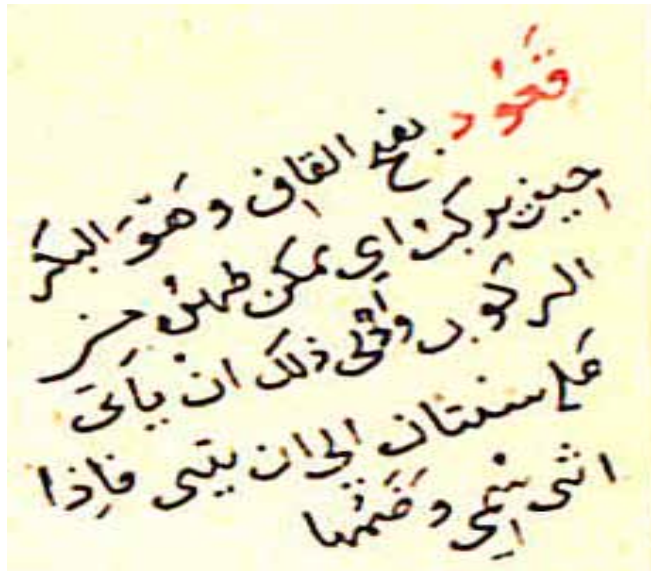 قَعُود بفتح القاف وهَوَ البَكَر
حين يركب اي يمكن ظهره من
الركوب وأدنى ذلك انْ ياتَى
عَلَيه سنتان الى ان يثنى فاِذا
اثنى سُمِى وضَمُّها